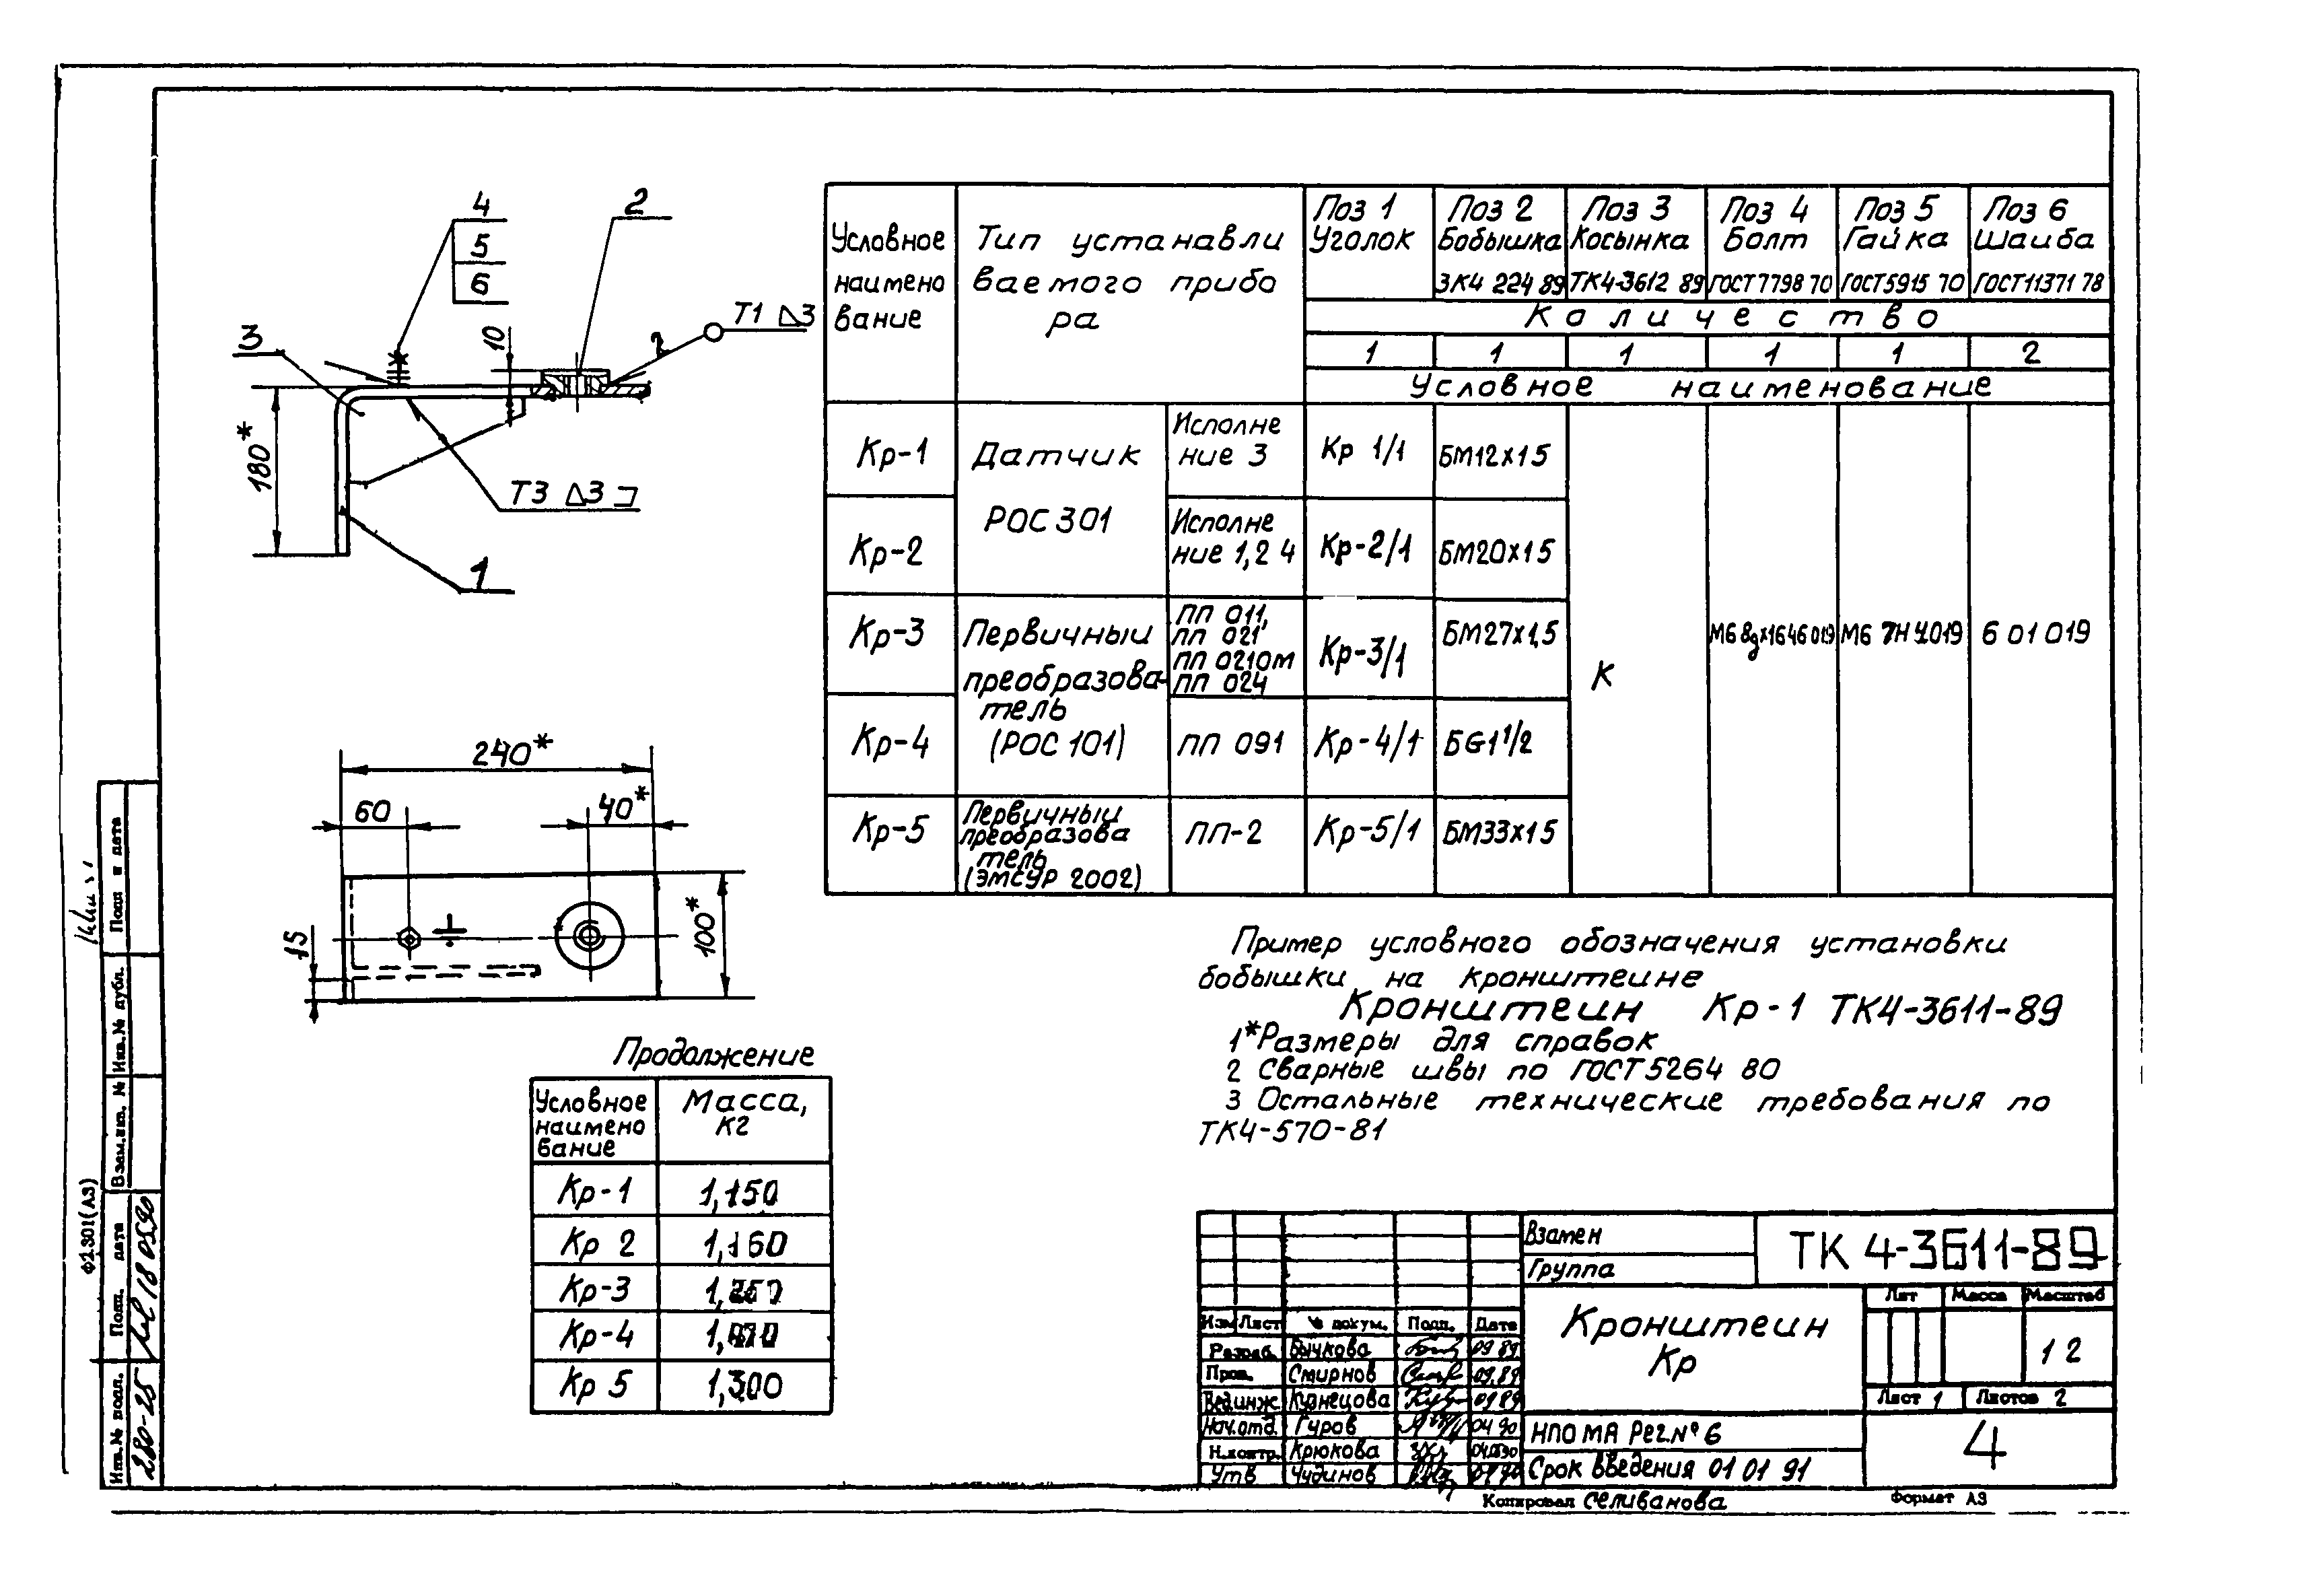 4
5
6
2
3
10
2
Т1 3
180*
Т3 3
1
240*
60
40*
100*
15
Условное
наимено
вание
Тип устанавли
ваемого прибо
ра
Поз 1
Уголок
Поз 2
Бобышка
ЗК4 224 89
Поз 3
Косынка
ТК4-3612 89
Поз 4
Болт
ГОСТ 7798 70
Поз 5
Гайка
ГОСТ 5915 70
Поз 6
Шаиба
ГОСТ 11371 78
Количество
1 1 1 1 1 2
Условное наименование
Кр-1
Датчик
РОС 301
Исполне
ние 3
Кр 1/1
БМ12х15
Кр-2
Исполне
ние 1,2 4
Кр-2/1
БМ20х15
Кр-3
Первичныи
преобразова-
тель
(РОС 101)
ПП 011,
ПП 021,
ПП 021ОМ
ПП 024
Кр-3/1
БМ27х1,5
К
М6 8gх16 46 019
М6 7Н 4 019
6 01 019
Кр-4
ПП 091
Кр-4/1
БG1 1/2
Кр-5
Первичныи
преобразова
тель
(ЭМСУР 2002)
ПП-2
Кр-5/1
БМ33х15
Пример условного обозначения установки
бобышки на кронштеине
Кронштеин Кр-1 ТК4-3611-89
1*Размеры для справок
2 Сварные швы по ГОСТ 5264 80
3 Остальные технические требования по
ТК4-570-81
Продолжение
Условное
наимено
вание
Масса,
кг
Кр-1 1,150
Кр 2 1,160
Кр-3
Кр-4
Кр 5 1,300
Взамен
Группа
ТК 4-3611-89
Кронштеин
Кр
Лит Масса Масштаб
1 2
Лист 1 Листов 2
Изм Лист № докум. Подп. Дата
Разраб. Бычкова 09 89
Пров. Смирнов 09.89
Вед.инж. Кузнецова 09 89
Нач.отд. Гуров 04 90
Н.контр. Крюкова
Утв Чудинов
НПО МА Рег.№ 6
Срок введения 01 01 91
4
Копировал Селиванова
Формат А3
Подп и дата
Инв.№ дубл.
Взам.инв. №
Подп. дата
18 05 90
Инв.№ подл.
280-25
Ф2.301(А3)